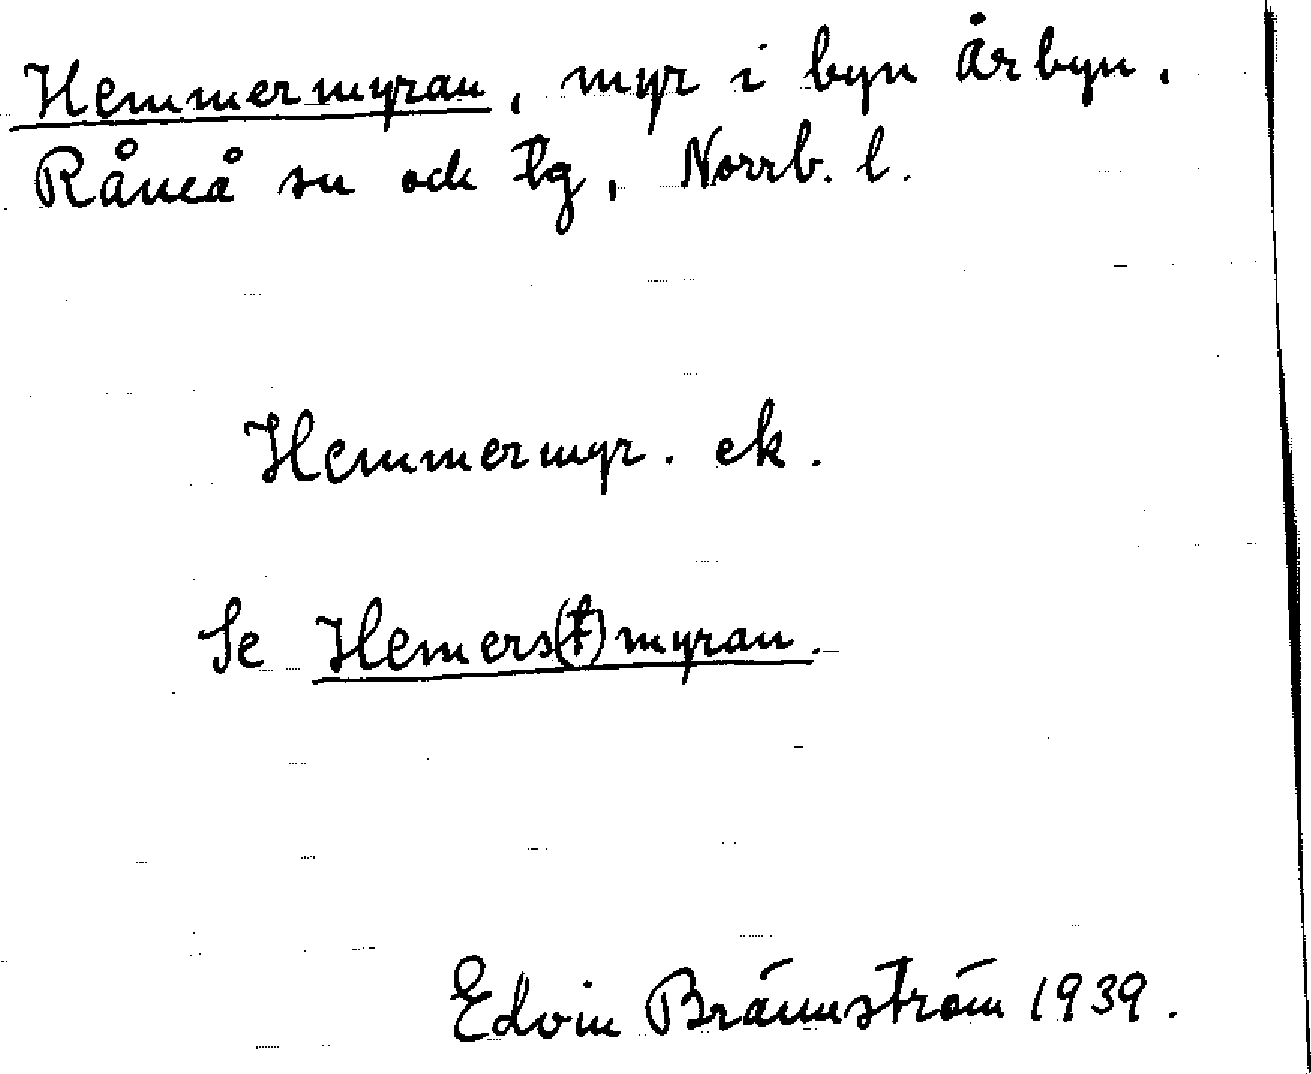 Hemmermyran, myr i byn Årbyn,
Råneå sn och tg, Norrb. l.
Hemmermyr. ek.
Se Hemers(t)myran.
Edvin Brännström 1939.